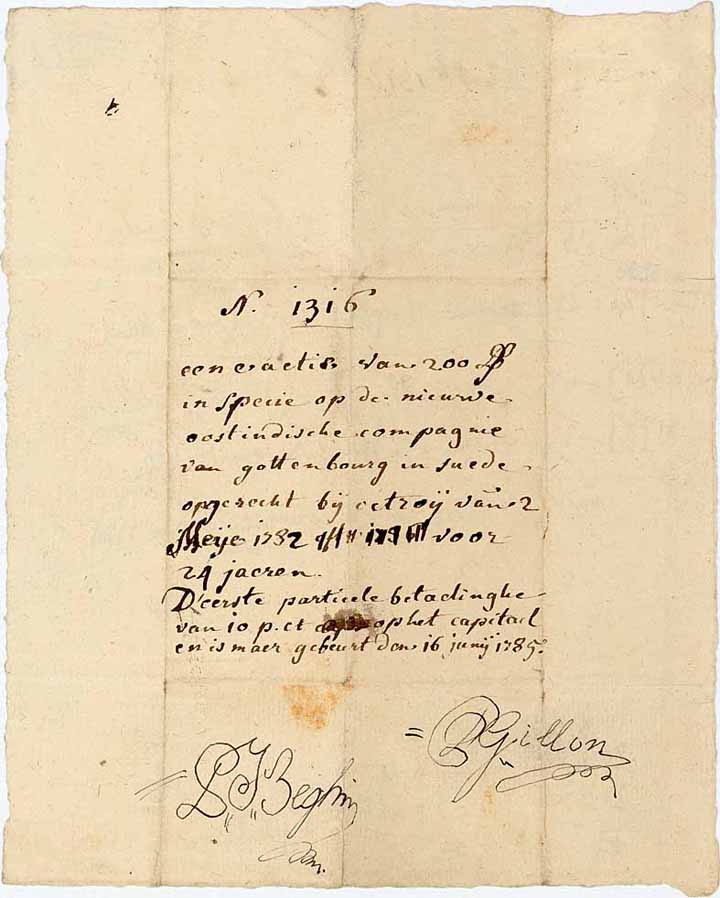 N. 1316
eene actie van 200
in specie op de nieuwe
oostindische compagnie
van gottenbourg in suede
opgerecht bij octroij van 2
Meije 1782 voor
24 jaeren.
D'eerste particele betaelinghe
van 10 p. ct op het capitael
en is maer gebeurt den 16 junij 1785.
= P Gillon
= P J Beghin